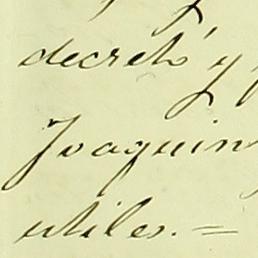 decretó y
Joaquin
utiles. =